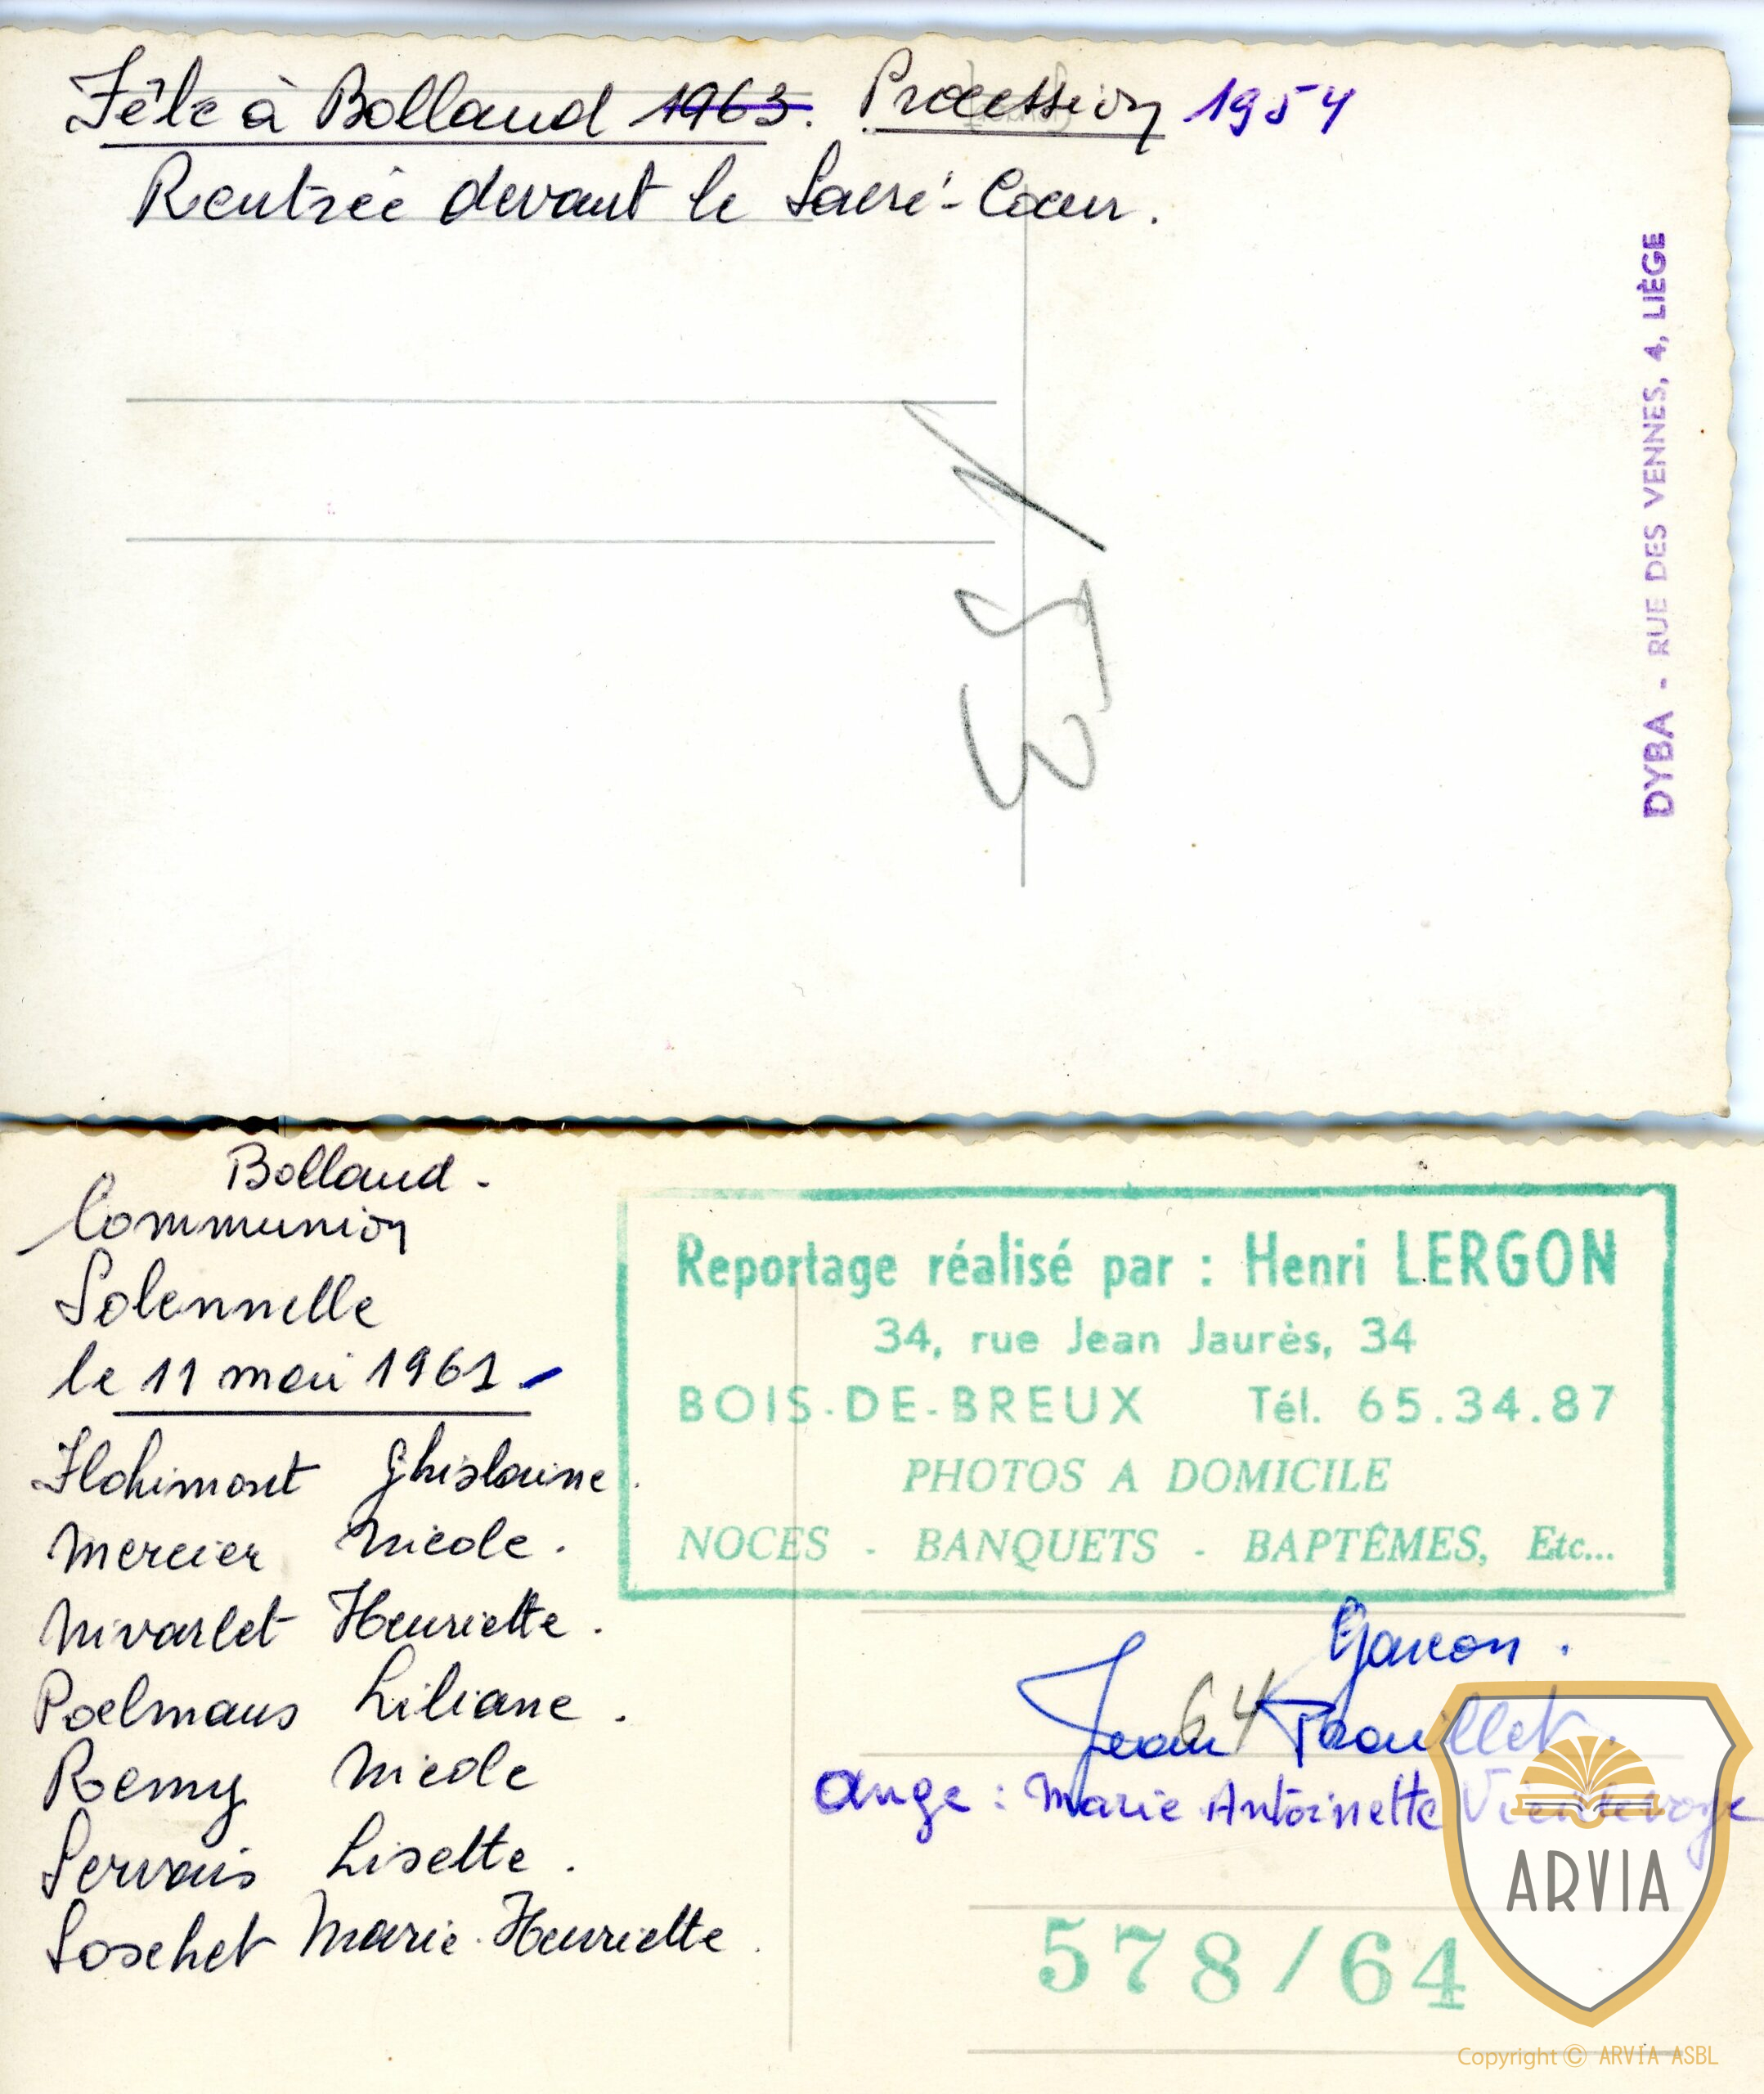 Fête à Bolland 1963. Procession 1954
Rentrée devant le Sacré-Cœur.
DYBA - RUE DES VENNES, 4, LIÈGE
Bolland -
Communion
Solennelle
le 11 mai 1961 -
Flohimont Ghislaine.
Mercier Nicole.
Nivarlet Henriette.
Poelmans Liliane.
Remy Nicole
Servais Lisette.
Soschet Marie-Henriette.
Reportage réalisé par : Henri LERGON
34, rue Jean Jaurès, 34
BOIS-DE-BREUX Tél. 65.34.87
PHOTOS A DOMICILE
NOCES - BANQUETS - BAPTÊMES, Etc...
Garcon.
64
Jean Trouillet.
Ange : Marie Antoinette
578/64
ARVIA
Copyright © ARVIA ASBL